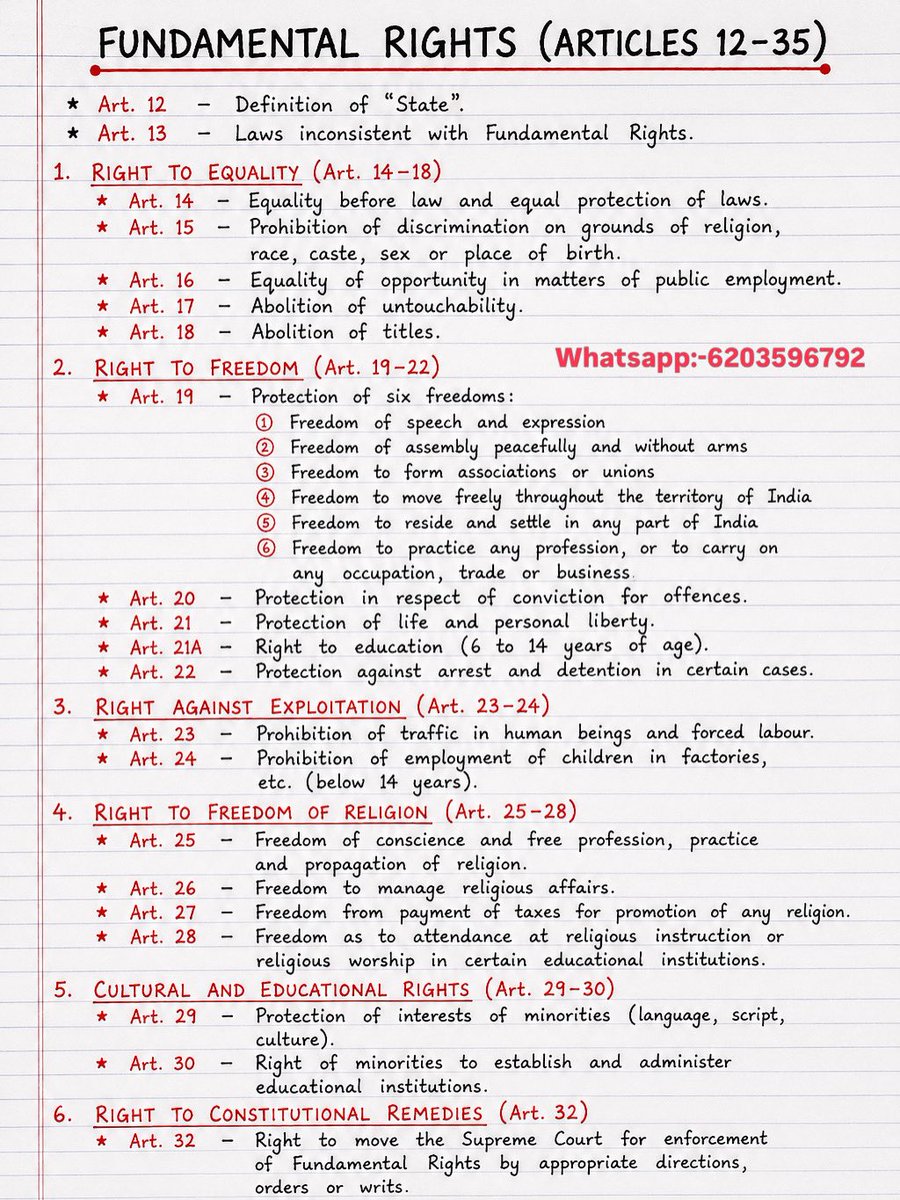 FUNDAMENTAL RIGHTS (ARTICLES 12-35)
★ Art. 12 – Definition of "State".
★ Art. 13 – Laws inconsistent with Fundamental Rights.
1. RIGHT TO EQUALITY (Art. 14-18)
★ Art. 14 – Equality before law and equal protection of laws.
★ Art. 15 – Prohibition of discrimination on grounds of religion,
race, caste, sex or place of birth.
★ Art. 16 – Equality of opportunity in matters of public employment.
★ Art. 17 – Abolition of untouchability.
★ Art. 18 – Abolition of titles.
Whatsapp:-6203596792
2. RIGHT TO FREEDOM (Art. 19-22)
★ Art. 19 – Protection of six freedoms:
① Freedom of speech and expression
② Freedom of assembly peacefully and without arms
③ Freedom to form associations or unions
④ Freedom to move freely throughout the territory of India
⑤ Freedom to reside and settle in any part of India
⑥ Freedom to practice any profession, or to carry on
any occupation, trade or business.
★ Art. 20 – Protection in respect of conviction for offences.
★ Art. 21 – Protection of life and personal liberty.
★ Art. 21A – Right to education (6 to 14 years of age).
★ Art. 22 – Protection against arrest and detention in certain cases.
3. RIGHT AGAINST EXPLOITATION (Art. 23-24)
★ Art. 23 – Prohibition of traffic in human beings and forced labour.
★ Art. 24 – Prohibition of employment of children in factories,
etc. (below 14 years).
4. RIGHT TO FREEDOM OF RELIGION (Art. 25-28)
★ Art. 25 – Freedom of conscience and free profession, practice
and propagation of religion.
★ Art. 26 – Freedom to manage religious affairs.
★ Art. 27 – Freedom from payment of taxes for promotion of any religion.
★ Art. 28 – Freedom as to attendance at religious instruction or
religious worship in certain educational institutions.
5. CULTURAL AND EDUCATIONAL RIGHTS (Art. 29-30)
★ Art. 29 – Protection of interests of minorities (language, script,
culture).
★ Art. 30 – Right of minorities to establish and administer
educational institutions.
6. RIGHT TO CONSTITUTIONAL REMEDIES (Art. 32)
★ Art. 32 – Right to move the Supreme Court for enforcement
of Fundamental Rights by appropriate directions,
orders or writs.